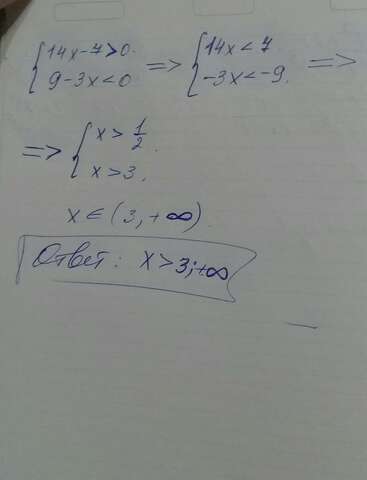 {14x-7>0. => {14x<7. =>
9-3x<0 -3x<-9.
=> {x > 1/2.
x>3,
x ∈ (3; +∞).
Ответ: x>3;+∞